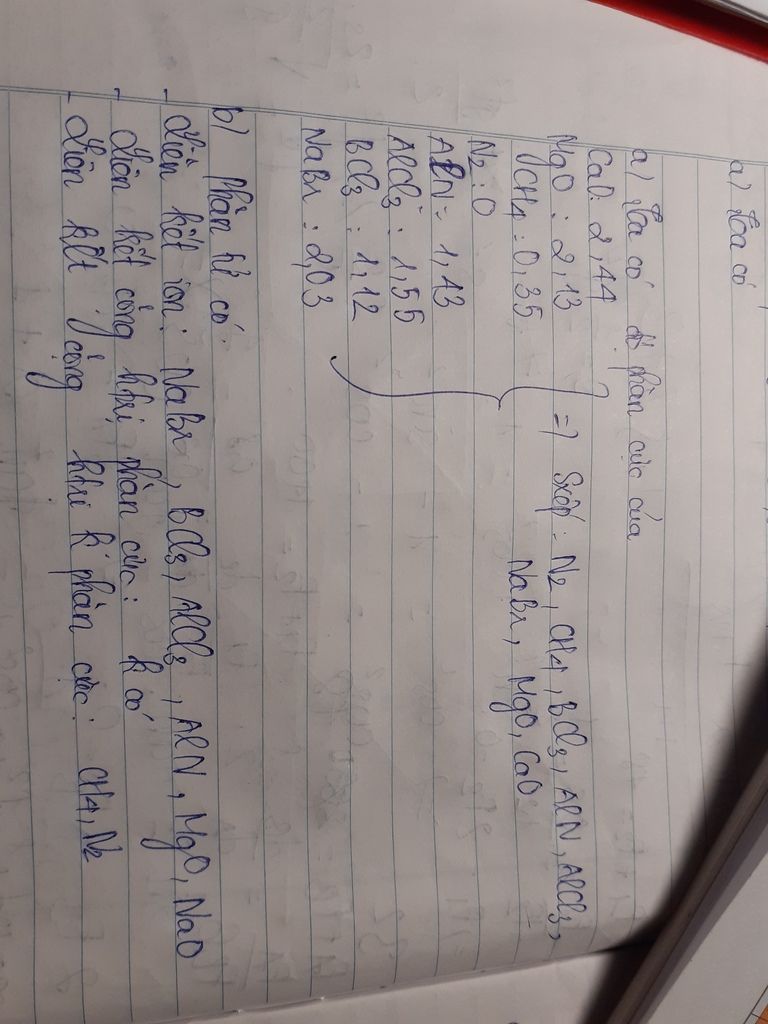 a) Ta có
a) Ta có độ phân cực của
CaO: 2,44
MgO: 2,13 => Sxếp: N2, CH4, BCl3, AlN, AlCl3,
CH4: 0,35 NaBr, MgO, CaO
N2: 0
AlN: 1,43
AlCl3: 1,55
BCl3: 1,12
NaBr: 2,03
b) Phân tử có:
- Liên kết ion: NaBr, BCl3, AlCl3, AlN, MgO, NaO
- Liên kết cộng htri phân cực: k có
- Liên kết cộng htri k phân cực: CH4, N2